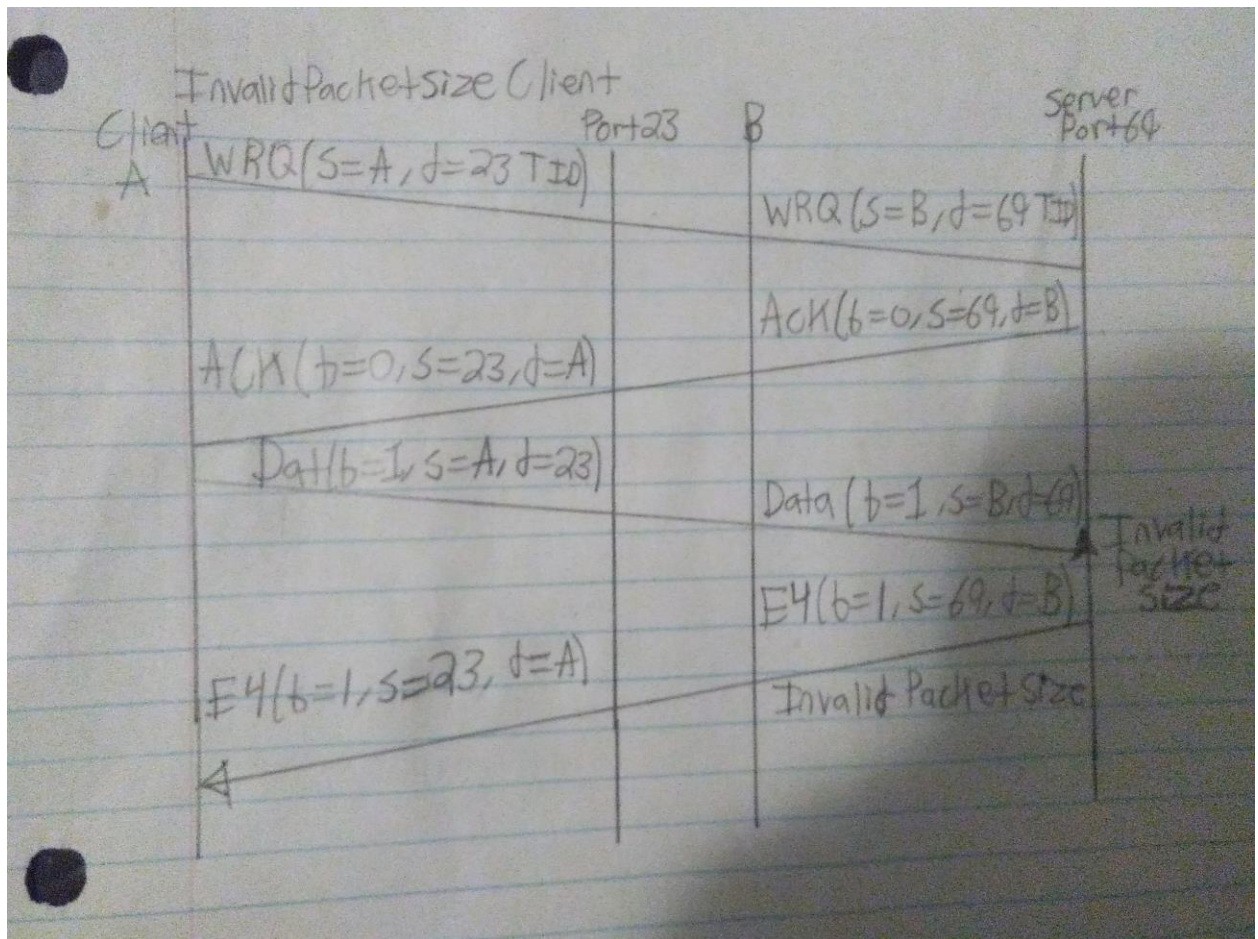 Invalid Packet size Client
Client
A
Port 23
B
Server
Port 69
WRQ(S=A, d=23 TID)
WRQ(S=B, d=69 TID)
ACK(b=0, S=69, d=B)
ACK(b=0, S=23, d=A)
Dat(b=1, S=A, d=23)
Data (b=1, S=B, d=69)
Invalid
Packet
size
E4(b=1, S=69, d=B)
E4(b=1, S=23, d=A)
Invalid Packet size